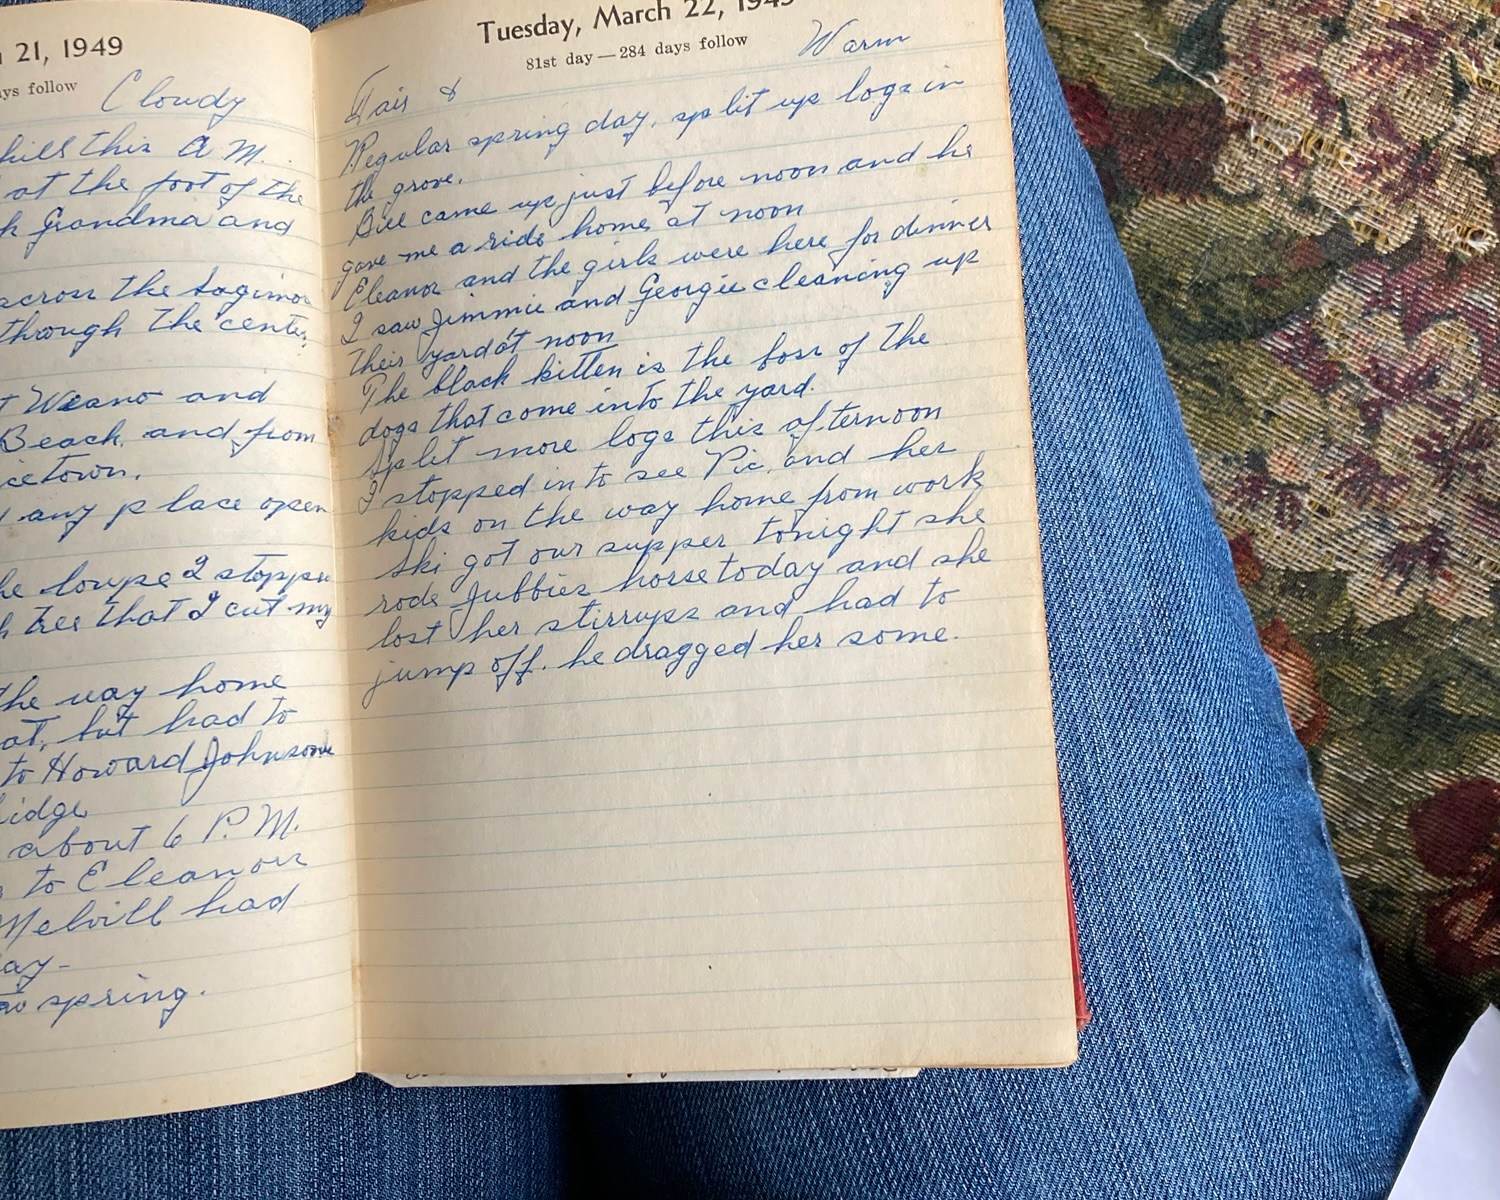 21, 1949
ys follow
Cloudy
hill this A M.
at the foot of the
Grandma and
across the
through the center
Weano and
Beach, and from
cetown.
any place open
he loupe I stoppe
tree that I cut my
the way home
at, but had to
to Howard Johnsons
idge
about 6 P. M.
to Eleanors
Melvill had
ay -
spring.
Tuesday, March 22, 1949
81st day — 284 days follow
Fair & Warm
Regular spring day, split up logs in
the grove.
Bill came up just before noon and he
gave me a ride home at noon
Eleanor and the girls were here for dinner
I saw Jimmie and Georgie cleaning up
their yard at noon
The black kitten is the boss of the
dogs that come into the yard.
Split more logs this afternoon
I stopped in to see Pic, and her
kids on the way home from work
Ski got our supper tonight she
rode Jubbies horse today and she
lost her stirrups and had to
jump off. he dragged her some.